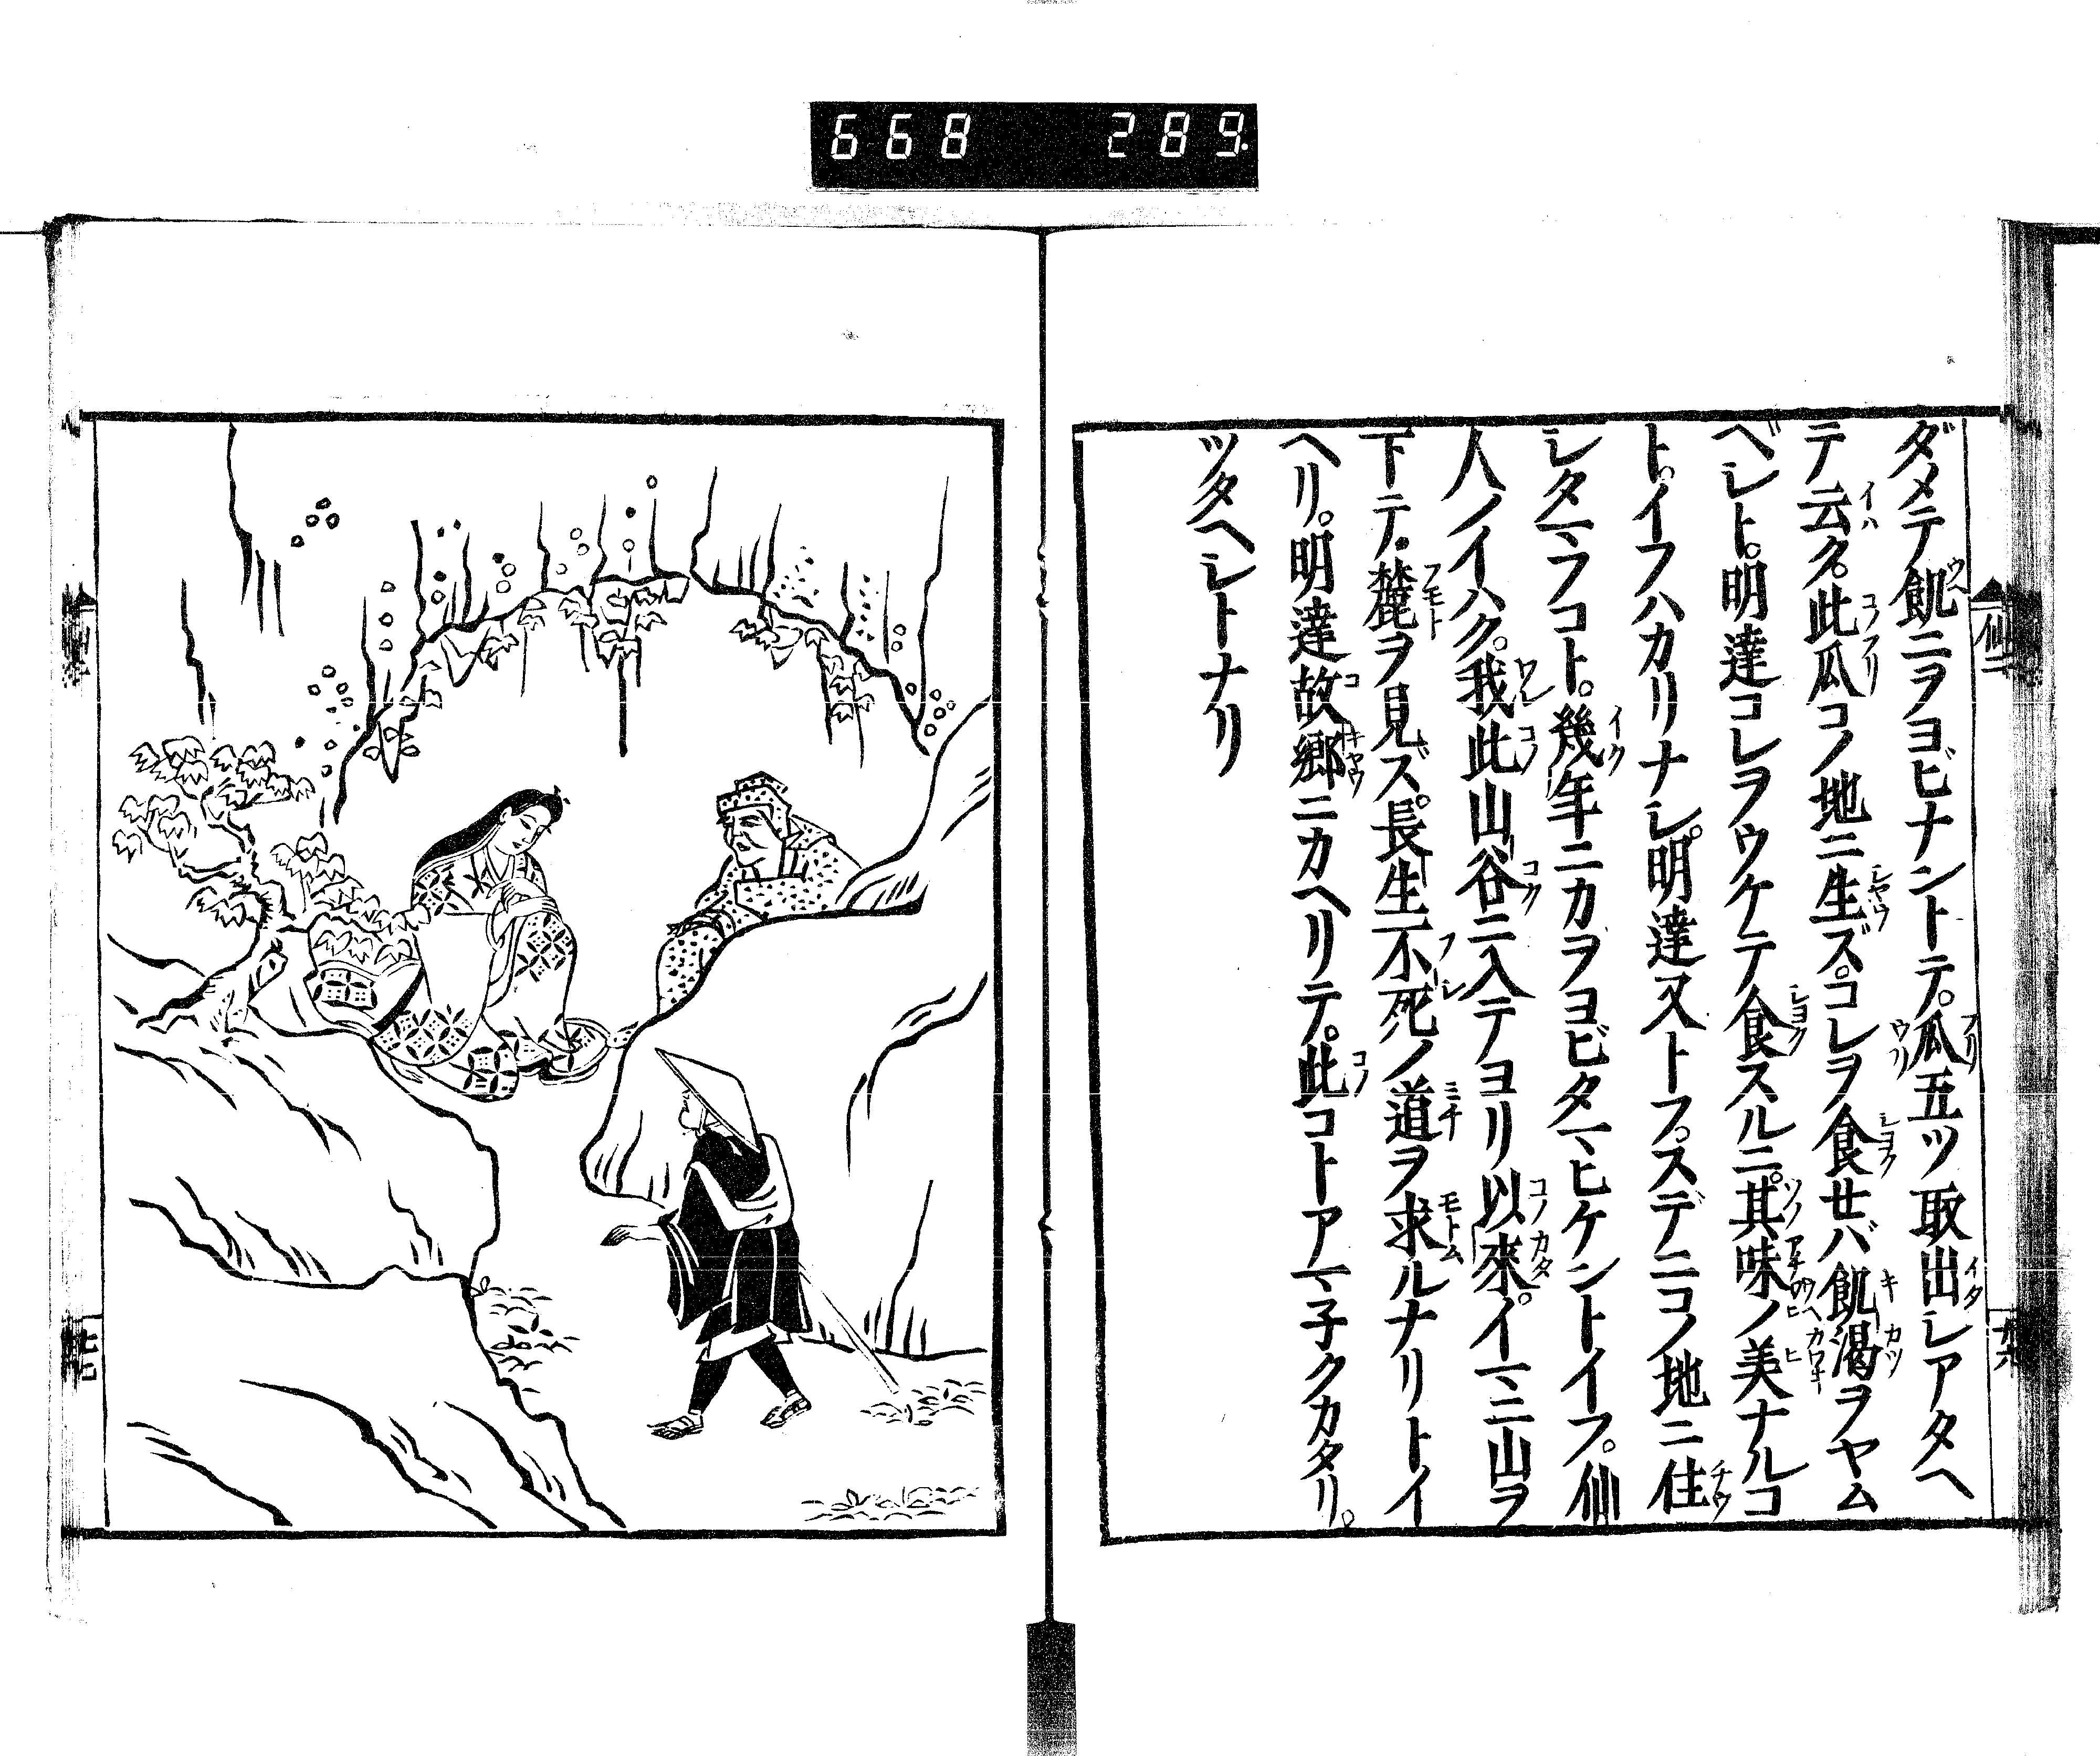 668 289.
ダメテ飢ニヲヨビナントテ。瓜五ツ取出レアタヘ
テ云ク。此瓜コノ地ニ生ズ。コレヲ食セバ飢渇ヲヤム
ベシト。明達コレヲウケテ食スルニ。其味ノ美ナルコ
ト。イフハカリナシ。明達又トフ。スデニコノ地ニ住
シタマフコト。幾年ニカヲヨビタマヒケントイフ。仙
人ノイハク。我此山谷ニ入テヨリ以來。イマニ山ヲ
下テ。麓ヲ見ズ。長生不死ノ道ヲ求ルナリトイ
ヘリ。明達故郷ニカヘリテ。此コトアマ子クカタリ。
ツタヘシトナリ